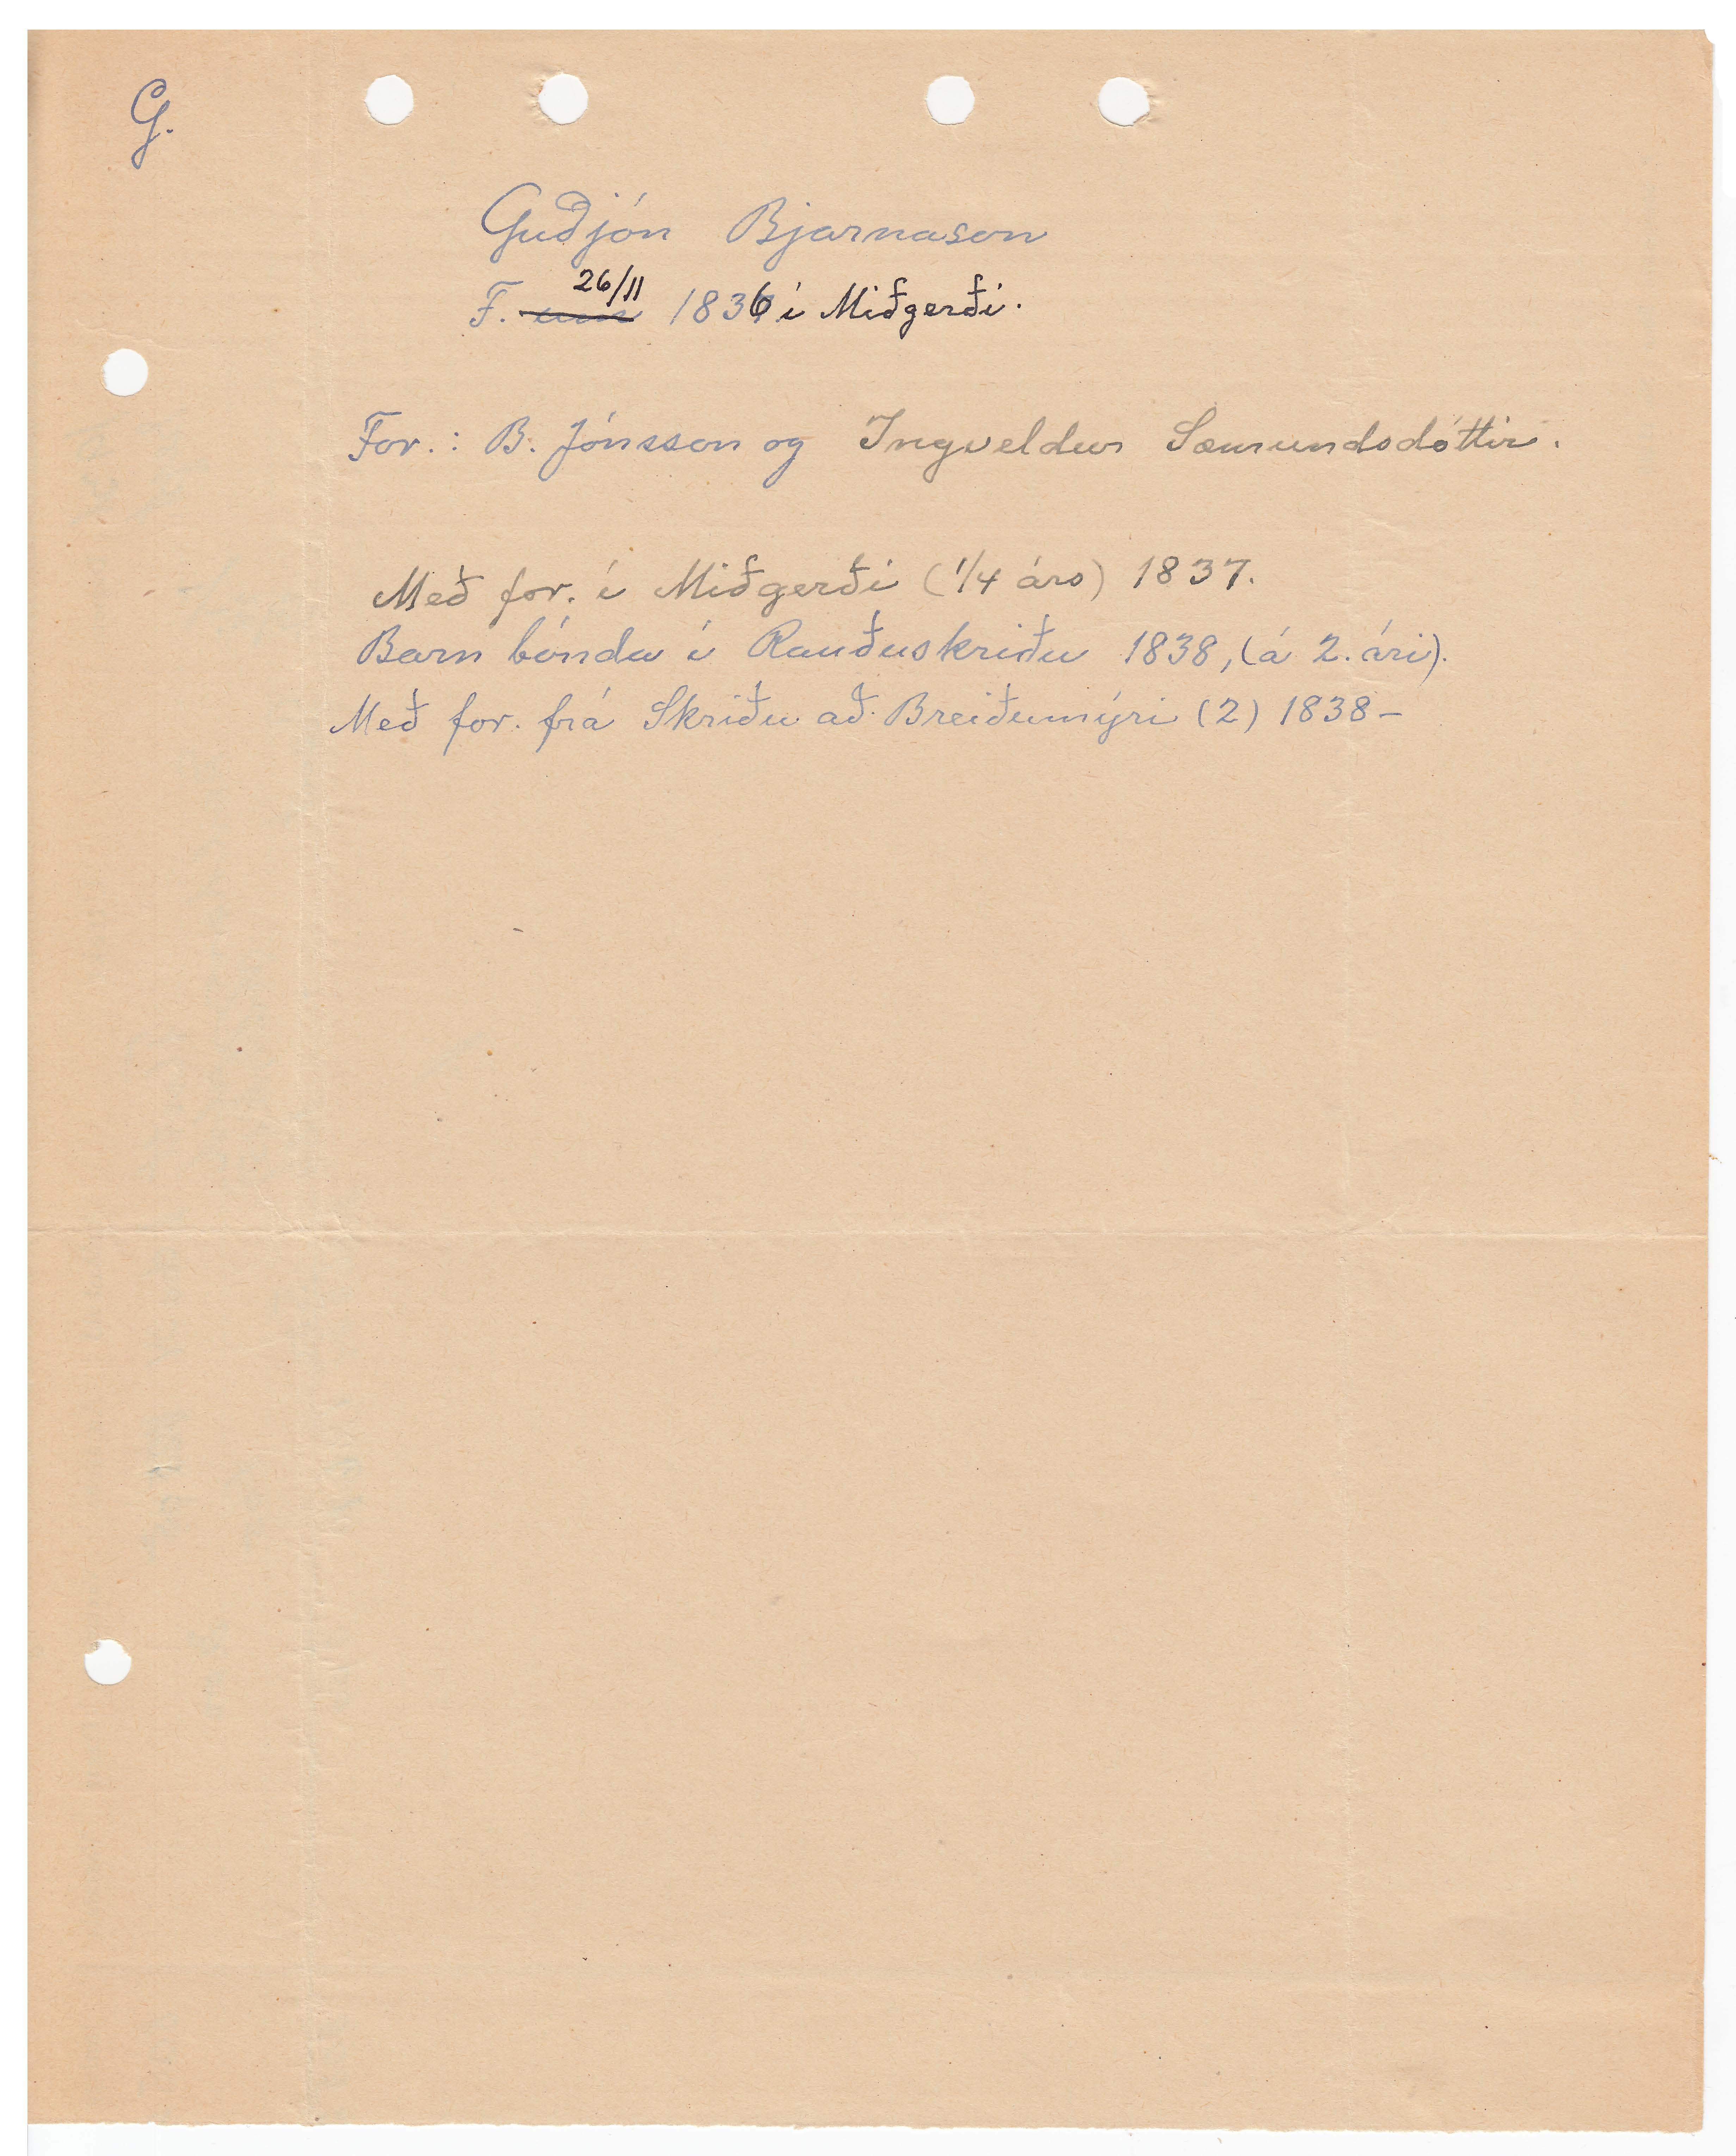 G.
Guðjón Bjarnason
F. um 26/11 1836 í Miðgerði.
For.: B. Jónsson og Ingveldur Sæmundsdóttir.
Með for. í Miðgerði (1/4 árs) 1837.
Barn bónda í Rauðuskriðu 1838, (á 2. ári).
Með for. frá Skriðu að Breiðumýri (2) 1838-